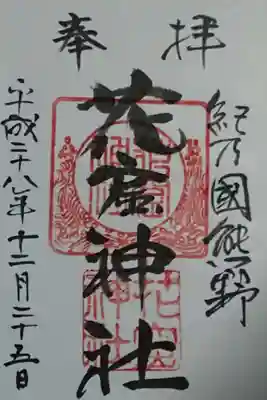 奉拝
紀乃國熊野
花窟神社
平成二十八年十二月二十五日
花窟神社